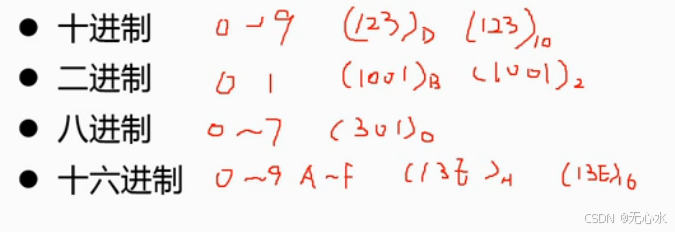 ● 十进制 0~9 (123)D (123)10
● 二进制 0 1 (1001)B (1001)2
● 八进制 0~7 (301)O
● 十六进制 0~9 A~F (13E)H (13E)16
CSDN @无心水